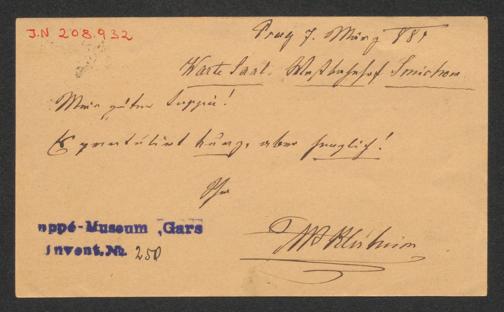 J.N 208.932
Prag 7. März 881
Warte Saal. Westbahnhof Smichow
Mein guter Suppé!
Gratulirt kurz, aber
Ihr
uppé-Museum, Gars
Invent. Nr. 250